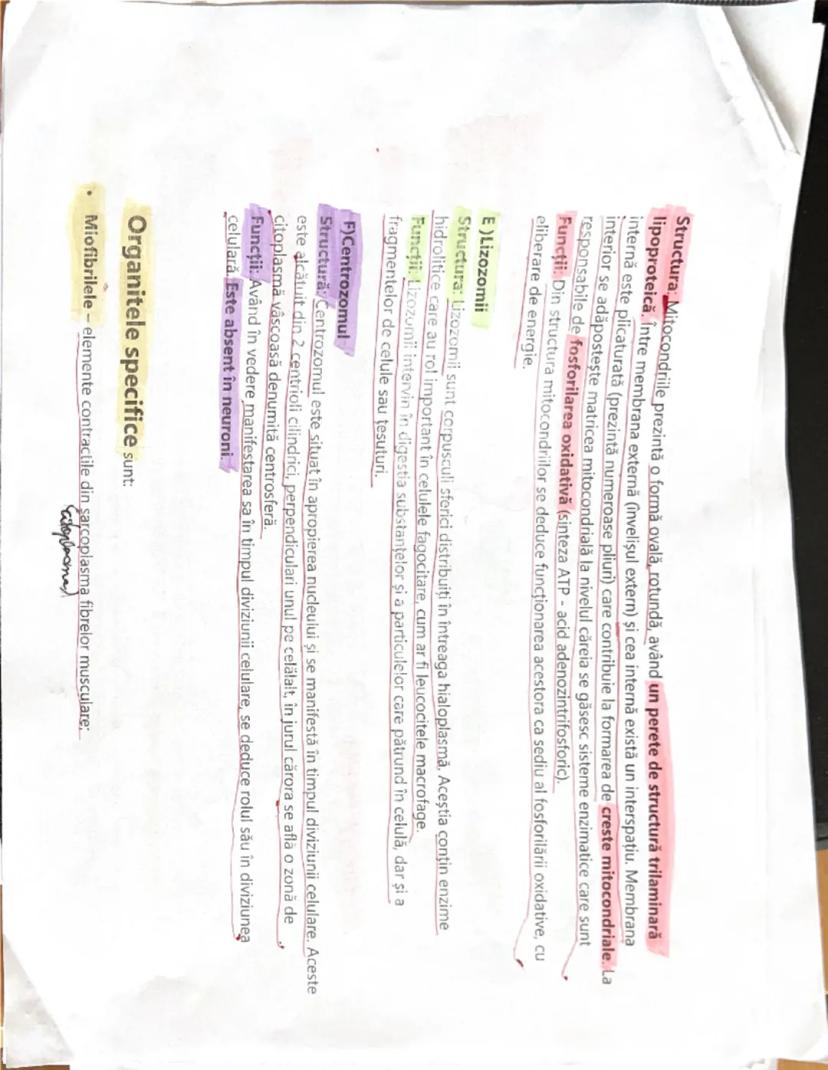 Structura: Mitocondriile prezintă o formă ovală, rotundă, având un perete de structură trilaminară
lipoproteică. Între membrana externă (învelișul extern) și cea internă există un interspațiu. Membrana
internă este plicaturată (prezintă numeroase pliuri) care contribuie la formarea de creste mitocondriale. La
interior se adăpostește matricea mitocondrială la nivelul căreia se găsesc sisteme enzimatice care sunt
responsabile de fosforilarea oxidativă (sinteza ATP - acid adenozintrifosforic).
Funcții: Din structura mitocondriilor se deduce funcționarea acestora ca sediu al fosforilării oxidative, cu
eliberare de energie.
E )Lizozomii
Structura: Lizozomii sunt corpusculi sferici distribuiți în întreaga hialoplasmă. Aceștia conțin enzime
hidrolitice care au rol important în celulele fagocitare, cum ar fi leucocitele macrofage.
Funcții: Lizozomii intervin în digestia substanțelor și a particulelor care pătrund în celulă, dar și a
fragmentelor de celule sau țesuturi.
F)Centrozomul
Structură: Centrozomul este situat în apropierea nucleului și se manifestă în timpul diviziunii celulare. Aceste
este alcătuit din 2 centrioli cilindrici, perpendiculari unul pe celălalt, în jurul cărora se află o zonă de
citoplasmă vâscoasă denumită centrosferă.
Funcții: Având în vedere manifestarea sa în timpul diviziunii celulare, se deduce rolul său în diviziunea
celulară. Este absent în neuroni.
Organitele specifice sunt:
• Miofibrilele – elemente contractile din sarcoplasma fibrelor musculare;
(citoplasma)